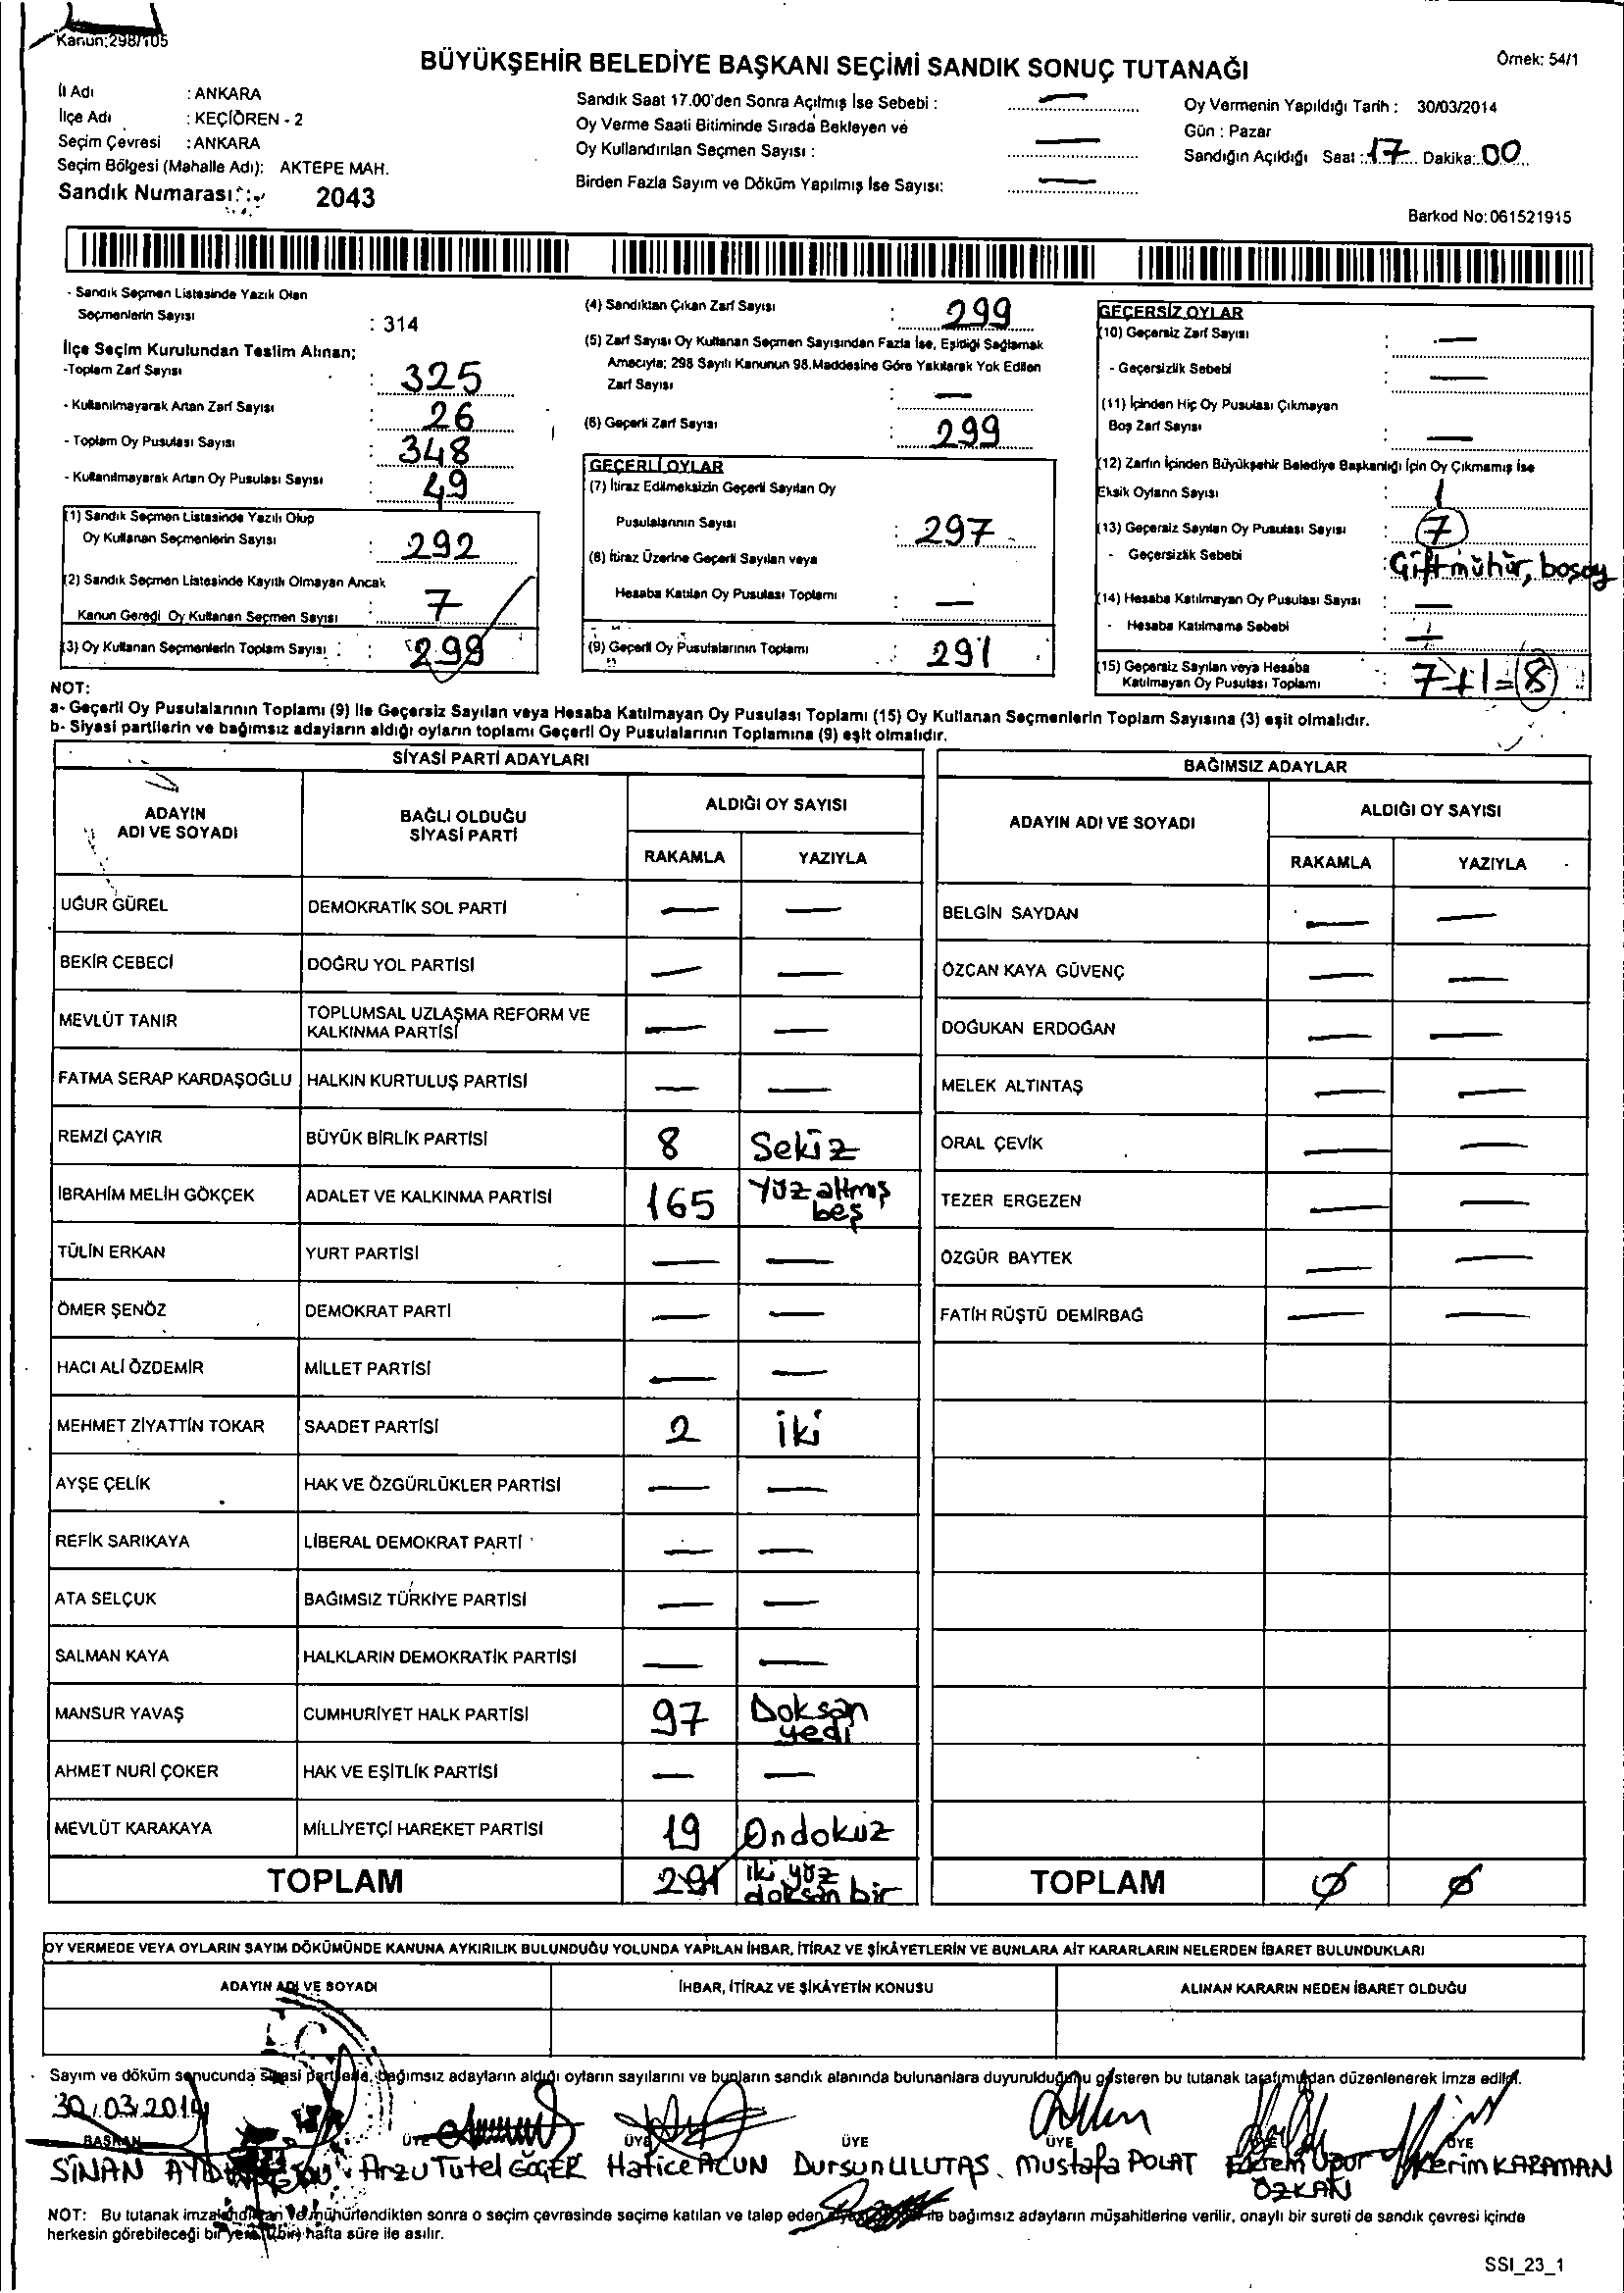 Kanun:298/105
BÜYÜKŞEHİR BELEDİYE BAŞKANI SEÇİMİ SANDIK SONUÇ TUTANAĞI
Örnek: 54/1
İl Adı : ANKARA
İlçe Adı : KEÇİÖREN - 2
Seçim Çevresi : ANKARA
Seçim Bölgesi (Mahalle Adı): AKTEPE MAH.
Sandık Numarası : 2043
Sandık Saat 17.00'den Sonra Açılmış İse Sebebi : —
Oy Verme Saati Bitiminde Sırada Bekleyen ve
Oy Kullandırılan Seçmen Sayısı : —
Birden Fazla Sayım ve Döküm Yapılmış İse Sayısı: —
Oy Vermenin Yapıldığı Tarih : 30/03/2014
Gün : Pazar
Sandığın Açıldığı Saat : 17 Dakika: 00
Barkod No: 061521915
- Sandık Seçmen Listesinde Yazılı Olan
Seçmenlerin Sayısı : 314
İlçe Seçim Kurulundan Teslim Alınan;
-Toplam Zarf Sayısı : 325
- Kullanılmayarak Artan Zarf Sayısı : 26
- Toplam Oy Pusulası Sayısı : 348
- Kullanılmayarak Artan Oy Pusulası Sayısı : 49
(1) Sandık Seçmen Listesinde Yazılı Olup
Oy Kullanan Seçmenlerin Sayısı : 292
(2) Sandık Seçmen Listesinde Kayıtlı Olmayan Ancak
Kanun Gereği Oy Kullanan Seçmen Sayısı : 7
(3) Oy Kullanan Seçmenlerin Toplam Sayısı : 299
(4) Sandıktan Çıkan Zarf Sayısı : 299
(5) Zarf Sayısı Oy Kullanan Seçmen Sayısından Fazla İse, Eşitliği Sağlamak
Amacıyla; 298 Sayılı Kanunun 98.Maddesine Göre Yakılarak Yok Edilen
Zarf Sayısı : —
(6) Geçerli Zarf Sayısı : 299
GEÇERLİ OYLAR
(7) İtiraz Edilmeksizin Geçerli Sayılan Oy
Pusulalarının Sayısı : 297
(8) İtiraz Üzerine Geçerli Sayılan veya
Hesaba Katılan Oy Pusulası Toplamı : —
(9) Geçerli Oy Pusulalarının Toplamı : 291
GEÇERSİZ OYLAR
(10) Geçersiz Zarf Sayısı : —
- Geçersizlik Sebebi : —
(11) İçinden Hiç Oy Pusulası Çıkmayan
Boş Zarf Sayısı : —
(12) Zarfın İçinden Büyükşehir Belediye Başkanlığı İçin Oy Çıkmamış İse
Eksik Oyların Sayısı : 1
(13) Geçersiz Sayılan Oy Pusulası Sayısı : 7
- Geçersizlik Sebebi : Çift mühür, boşoy
(14) Hesaba Katılmayan Oy Pusulası Sayısı : —
- Hesaba Katılmama Sebebi : —
(15) Geçersiz Sayılan veya Hesaba
Katılmayan Oy Pusulası Toplamı : 7+1=8
NOT:
a- Geçerli Oy Pusulalarının Toplamı (9) İle Geçersiz Sayılan veya Hesaba Katılmayan Oy Pusulası Toplamı (15) Oy Kullanan Seçmenlerin Toplam Sayısına (3) eşit olmalıdır.
b- Siyasi partilerin ve bağımsız adayların aldığı oyların toplamı Geçerli Oy Pusulalarının Toplamına (9) eşit olmalıdır.
SİYASİ PARTİ ADAYLARI
ADAYIN ADI VE SOYADI
BAĞLI OLDUĞU SİYASİ PARTİ
ALDIĞI OY SAYISI
RAKAMLA YAZIYLA
UĞUR GÜREL DEMOKRATİK SOL PARTİ — —
BEKİR CEBECİ DOĞRU YOL PARTİSİ — —
MEVLÜT TANIR TOPLUMSAL UZLAŞMA REFORM VE KALKINMA PARTİSİ — —
FATMA SERAP KARDAŞOĞLU HALKIN KURTULUŞ PARTİSİ — —
REMZİ ÇAYIR BÜYÜK BİRLİK PARTİSİ 8 Sekiz
İBRAHİM MELİH GÖKÇEK ADALET VE KALKINMA PARTİSİ 165 Yüz altmış beş
TÜLİN ERKAN YURT PARTİSİ — —
ÖMER ŞENÖZ DEMOKRAT PARTİ — —
HACI ALİ ÖZDEMİR MİLLET PARTİSİ — —
MEHMET ZİYATTİN TOKAR SAADET PARTİSİ 2 iki
AYŞE ÇELİK HAK VE ÖZGÜRLÜKLER PARTİSİ — —
REFİK SARIKAYA LİBERAL DEMOKRAT PARTİ — —
ATA SELÇUK BAĞIMSIZ TÜRKİYE PARTİSİ — —
SALMAN KAYA HALKLARIN DEMOKRATİK PARTİSİ — —
MANSUR YAVAŞ CUMHURİYET HALK PARTİSİ 97 Doksan yedi
AHMET NURİ ÇOKER HAK VE EŞİTLİK PARTİSİ — —
MEVLÜT KARAKAYA MİLLİYETÇİ HAREKET PARTİSİ 19 Ondokuz
TOPLAM 291 iki yüz doksan bir
BAĞIMSIZ ADAYLAR
ADAYIN ADI VE SOYADI
ALDIĞI OY SAYISI
RAKAMLA YAZIYLA
BELGİN SAYDAN — —
ÖZCAN KAYA GÜVENÇ — —
DOĞUKAN ERDOĞAN — —
MELEK ALTINTAŞ — —
ORAL ÇEVİK — —
TEZER ERGEZEN — —
ÖZGÜR BAYTEK — —
FATİH RÜŞTÜ DEMİRBAĞ — —
TOPLAM Ø Ø
OY VERMEDE VEYA OYLARIN SAYIM DÖKÜMÜNDE KANUNA AYKIRILIK BULUNDUĞU YOLUNDA YAPILAN İHBAR, İTİRAZ VE ŞİKÂYETLERİN VE BUNLARA AİT KARARLARIN NELERDEN İBARET BULUNDUKLARI
ADAYIN ADI VE SOYADI
İHBAR, İTİRAZ VE ŞİKÂYETİN KONUSU
ALINAN KARARIN NEDEN İBARET OLDUĞU
Sayım ve döküm sonucunda siyasi partilerle, bağımsız adayların aldığı oyların sayılarını ve bunların sandık alanında bulunanlara duyurulduğunu gösteren bu tutanak tarafımızdan düzenlenerek imza edildi.
30.03.2014
BAŞKAN ÜYE ÜYE ÜYE ÜYE ÜYE
SİNAN Arzu Tutel GÖÇER Hatice ACUN Dursun ULUTAŞ Mustafa POLAT Kerim KARAMAN
ÖZKAN
NOT: Bu tutanak imzalandıktan ve mühürlendikten sonra o seçim çevresinde seçime katılan ve talep eden ile bağımsız adayların müşahitlerine verilir, onaylı bir sureti de sandık çevresi içinde
herkesin görebileceği bir yere (bir) hafta süre ile asılır.
SSI_23_1